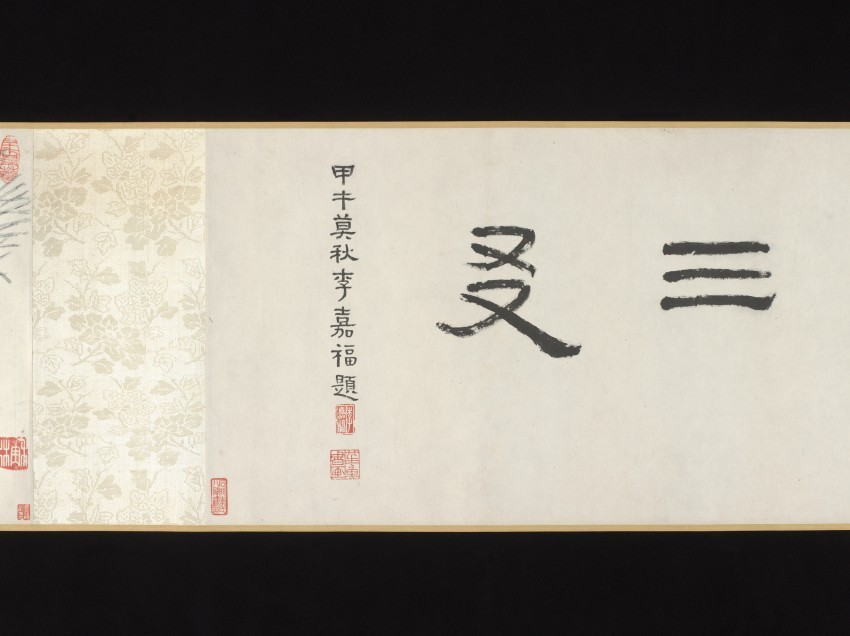 三㕛
甲午莫秋李嘉福題